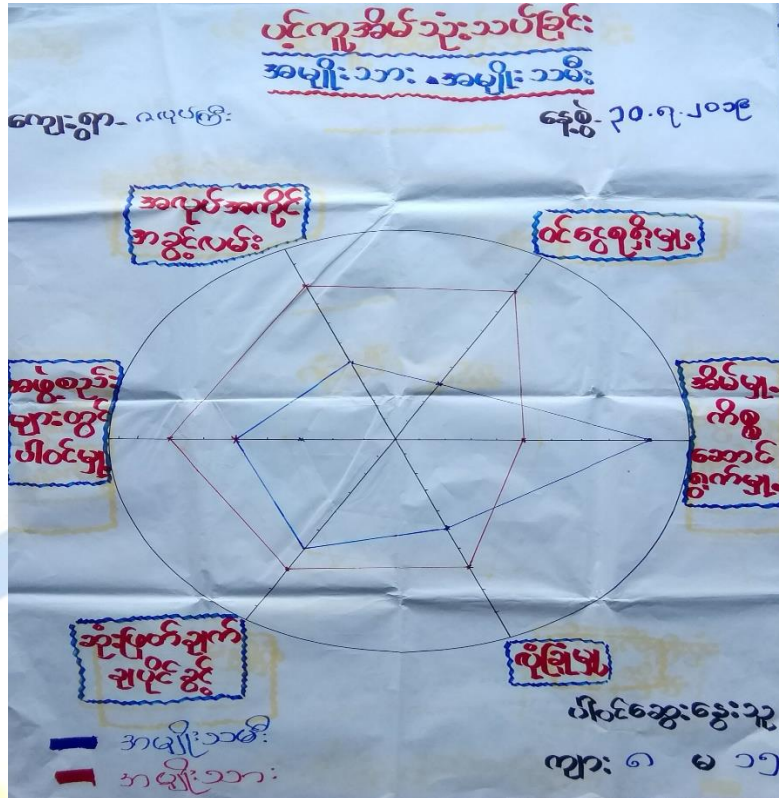 ပင့်ကူအိမ်သုံးသပ်ခြင်း
အမျိုးသား - အမျိုးသမီး
ကျေးရွာ- လုပ်ကြီး
နေ့စွဲ- ၃၀.၇.၂၀၁၉
အလုပ်အကိုင်
အခွင့်လမ်း
ဝင်ငွေရရှိမှု
အဖွဲ့စည်း
များတွင်
ပါဝင်မှု
အိမ်မှု
ကိစ္စ
ဆောင်
ရွက်မှု
ဆုံးဖြတ်ချက်
ချပိုင်ခွင့်
လုံခြုံမှု
ပါဝင်ဆွေးနွေးသူ
အမျိုးသမီး
ကျား ၆ မ ၁၅
အမျိုးသား